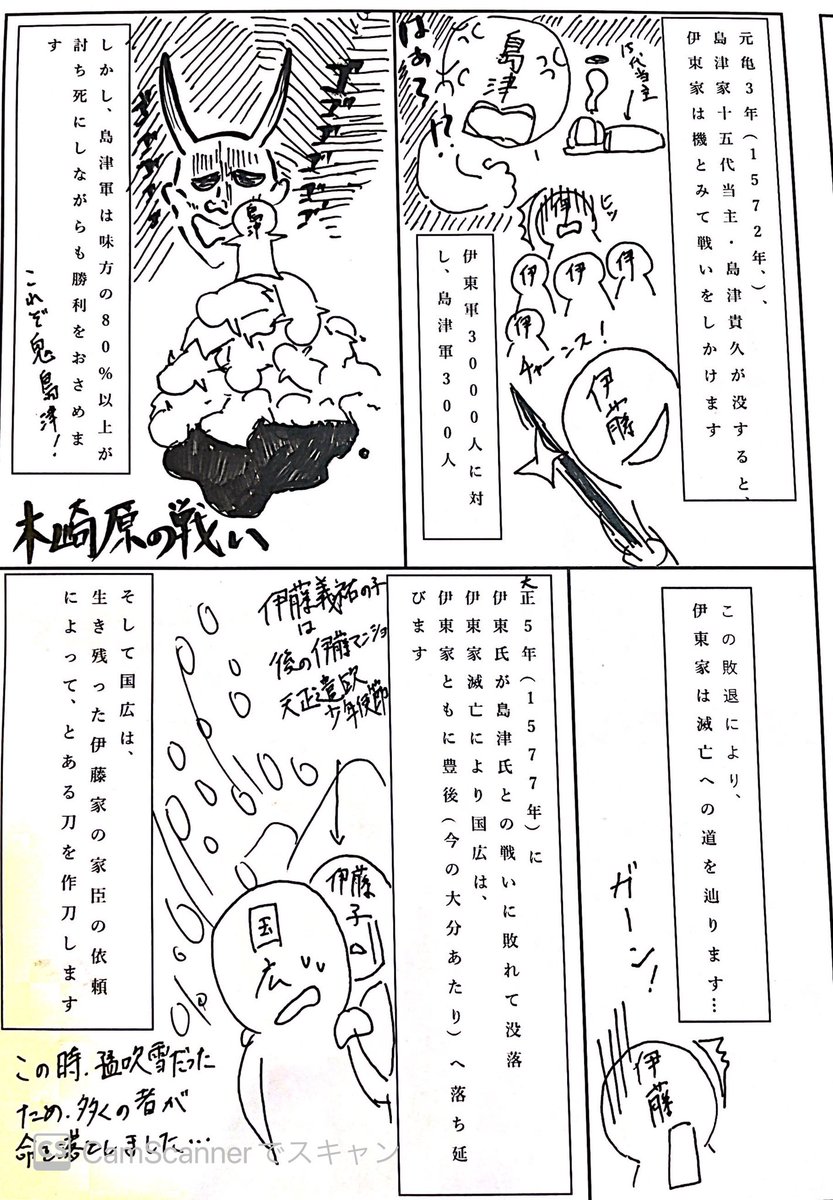 元亀3年(1572年、)、
島津家十五代当主・島津貴久が没すると、
伊東家は機とみて戦いをしかけます
15代当主
島津
はあろ!?
ピッ
伊
伊
伊
伊
チャーンス!
伊藤
伊東軍3000人に対
し、島津軍300人
ゴゴゴゴ
ゴゴゴゴ
島津
しかし、島津軍は味方の80%以上が
討ち死にしながらも勝利をおさめま
す
これぞ鬼島津!
木崎原の戦い
この敗退により、
伊東家は滅亡への道を辿ります…
ガーン!
伊藤
大正5年(1577年)に
伊東氏が島津氏との戦いに敗れて没落
伊東家滅亡により国広は、
伊東家ともに豊後(今の大分あたり)へ落ち延
びます
伊藤義祐の子
は
後の伊藤マンショ
天正遣欧
少年使節
伊藤子
国広
そして国広は、
生き残った伊藤家の家臣の依頼
によって、とある刀を作刀します
この時、猛吹雪だった
ため、多くの者が
命を落としました…
CS CamScanner でスキャン